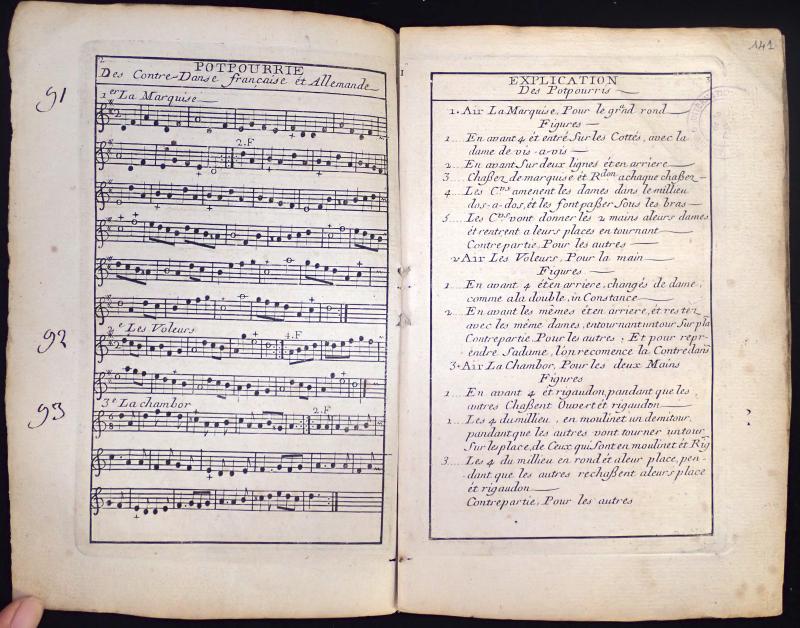 91
92
93
2
POTPOURRIE
Des Contre-Danse française et Allemande
1er La Marquise
2.F
2e Les Voleurs
4.F
3e La chambor
2.F
141
EXPLICATION
Des Potpourris
1. Air La Marquise, Pour le grand rond
Figures
1.... En avant 4 et entré Sur les Cottés, avec la
dame de vis-a-vis
2.... En avant Sur deux lignes et en arriere
3.... Chaßez de marquise et Rdon achaque chaßez
4.... Les Cers amenent les dames dans le millieu
dos-a-dos, et les font paßer Sous les bras
5.... Les Cers vont donner les 2 mains aleurs dames
et rentrent a leurs places en tournant
Contrepartie, Pour les autres
2 Air Les Voleurs, Pour la main
Figures
1.... En avant 4 et en arriere, changés de dame,
comme ala double, in Constance
2.... En avant les mêmes et en arriere, et rester
avec les même dames, entournant untour Sur pla
Contrepartie Pour les autres, Et pour repr-
endre Sadame, l'on recomence la Contredans
3. Air La Chambor, Pour les deux Mains
Figures
1.... En avant 4 et rigaudon, pandant que les
autres Chaßent Ouvert et rigaudon
2.... Les 4 du millieu, en moulinet un demitour,
pandant que les autres vont tourner untour
Sur les place, de Ceux qui Sont en moulinet et Rig
3.... Les 4 du millieu en rond et aleur place, pen-
dant que les autres rechaßent aleurs place
et rigaudon
Contrepartie, Pour les autres